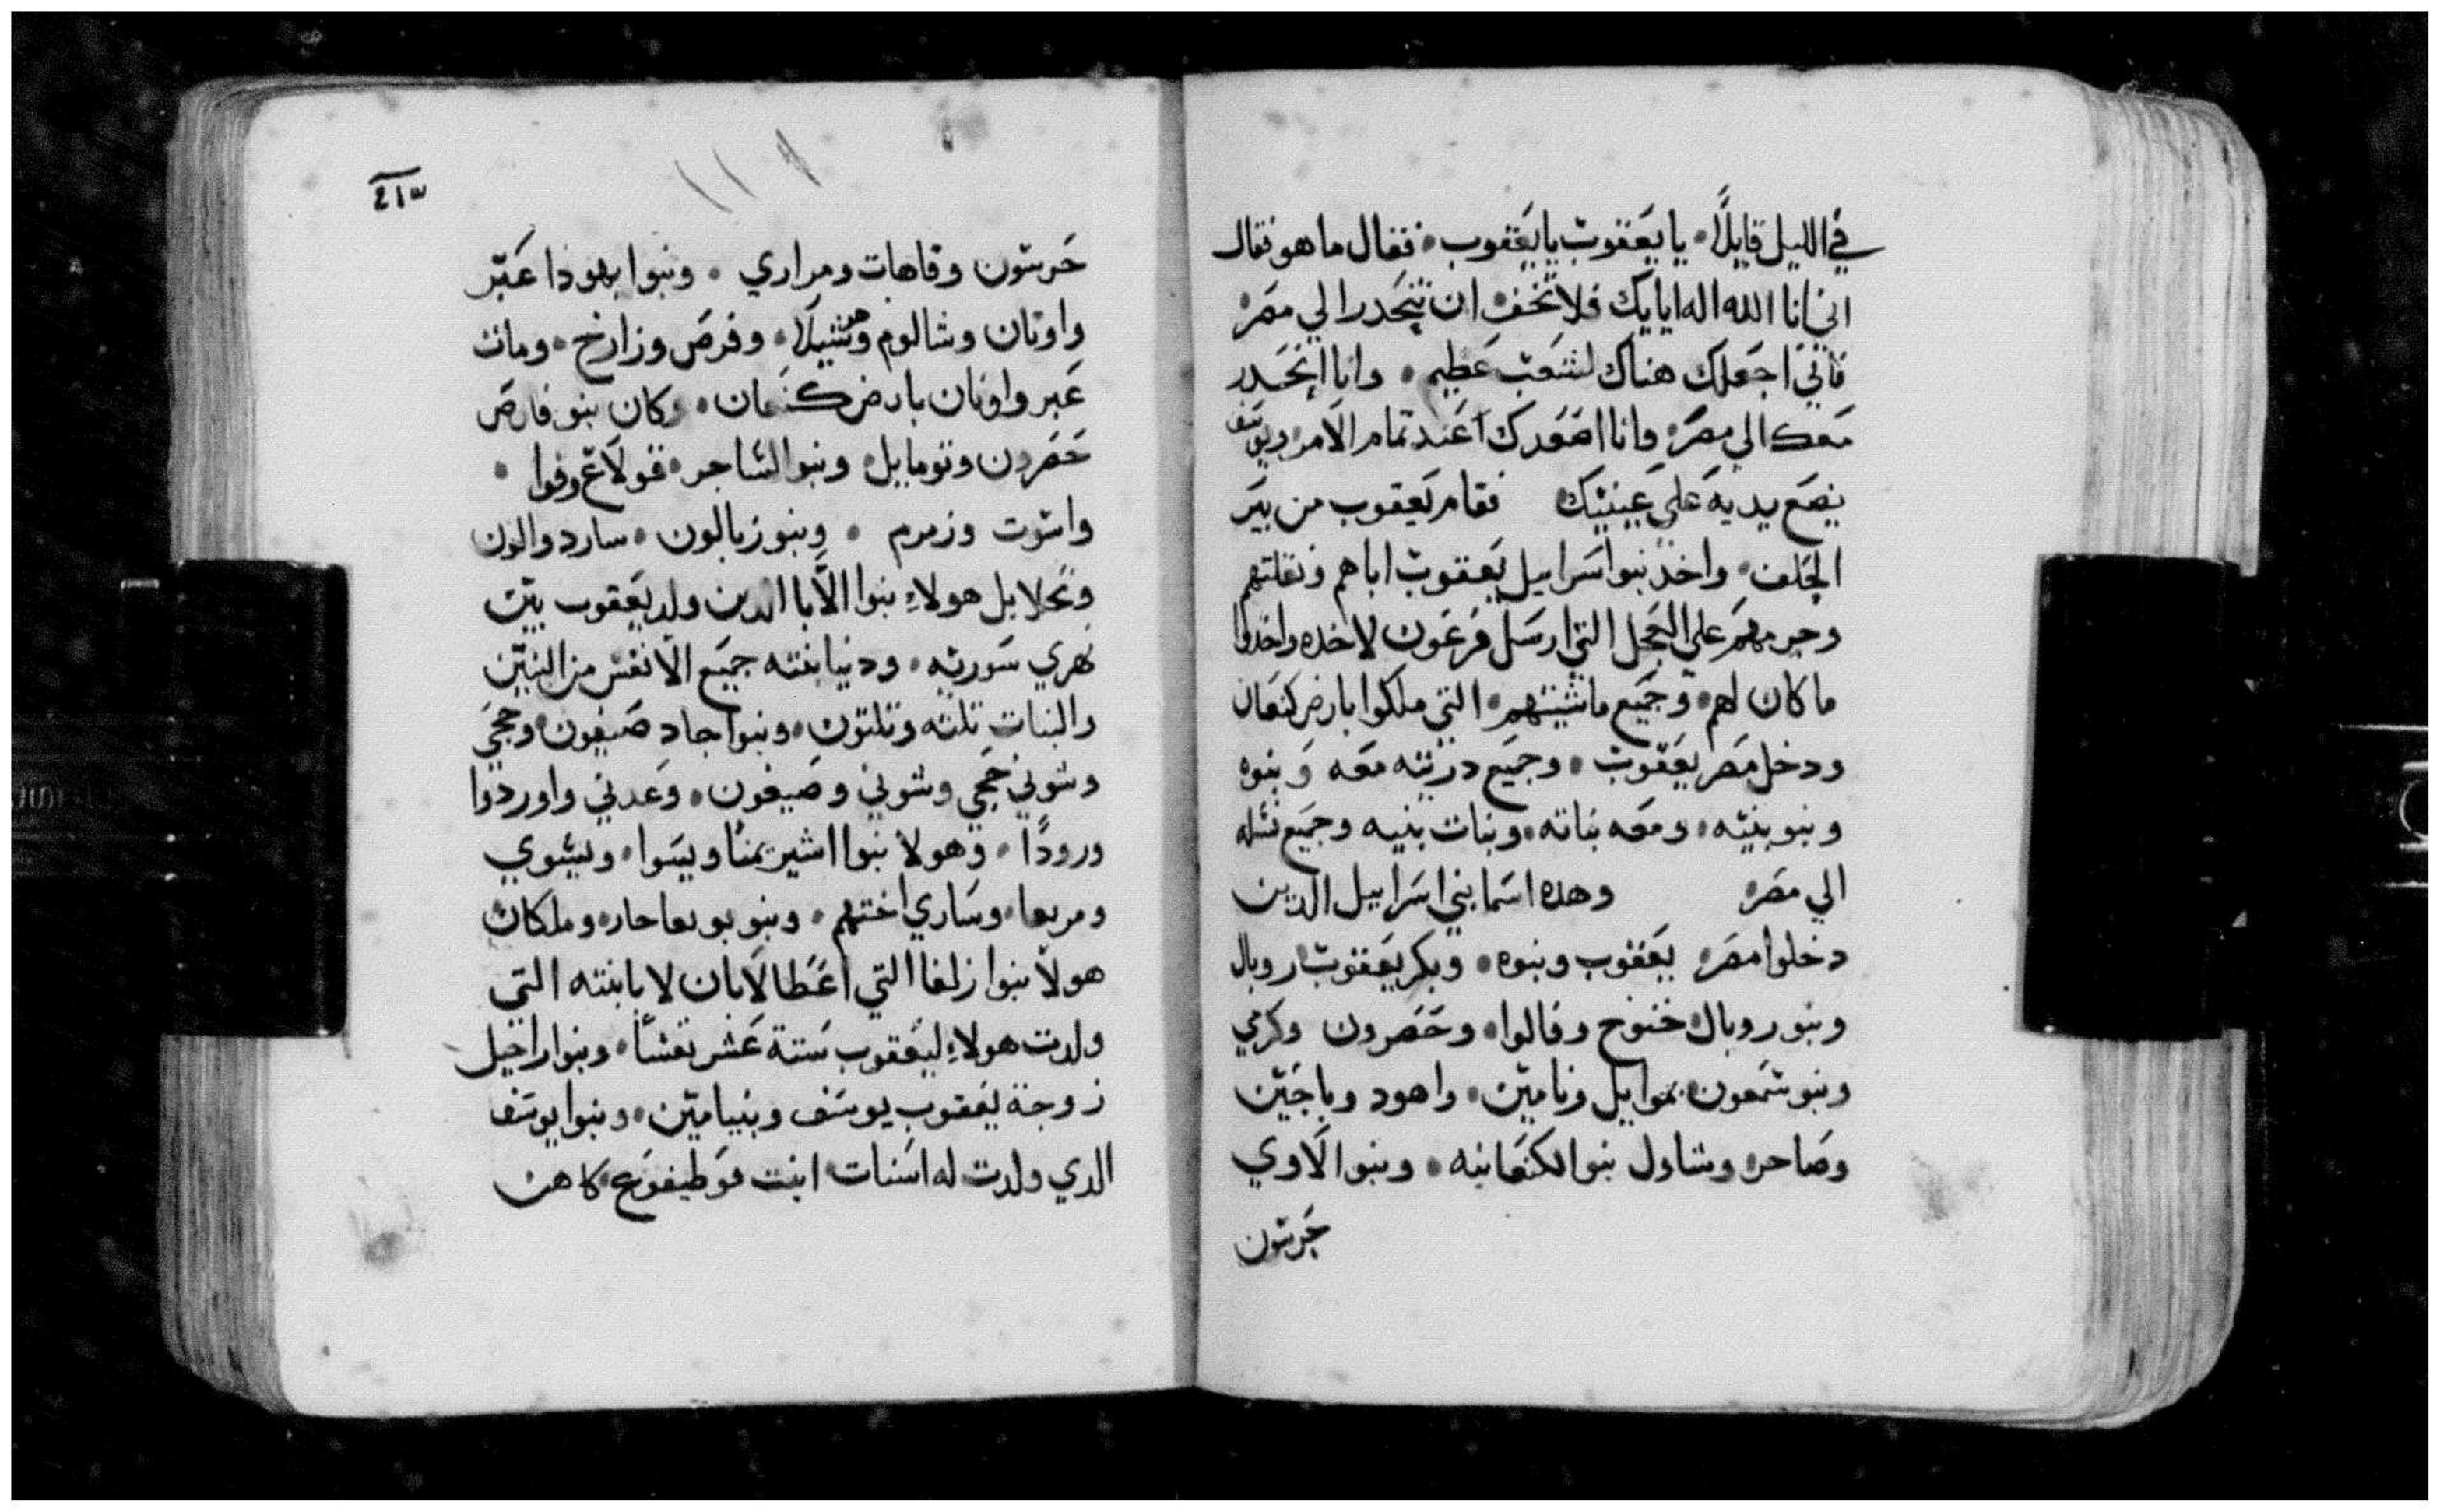 في الليل قايلًا • يا يعقوب يا يعقوب • فقال ما هو فقال
اني انا الله اله ابايك فلا تخف ان تنحدر الي مصر •
فاني اجعلك هناك لشعب عظيم • وانا انحدر
معك الي مصر • وانا اصعدك عند تمام الامر ويوسف
يضع يديه علي عينيك فقام يعقوب من بير
الحلف • واخد بنوا اسراييل يعقوب اباهم ونقلتهم
علي العجل التي ارسل فرعون لاخده واخدوا
ما كان لهم • وجميع ماشيتهم • التي ملكوا بارض كنعان
ودخل مصر يعقوب • وجميع دريته معه وبنوه
وبنو بنيه • ومعه بناته • وبنات بنيه وجميع نسله
الي مصر • وهده اسما بني اسراييل الدين
دخلوا مصر • يعقوب وبنوه • وبكر يعقوب روبال
وبنو روبال • خنوخ وفالوا • وحصرون وكرمي
وبنو شمعون • بموايل ونامين • واهود وياجين
وصاحر • وشاول بنو الكنعانيه • وبنوا لاوي
جرشون
٢١٣
جرشون وقاهات ومراري • وبنوا يهودا عير
واونان وشالوم وشيلا • وفرص وزارح • ومات
عير واونان بارض كنعان • وكان بنو فارص
حصرون وتومابيل • وبنو الشاجر • قولاع وفوا •
واشوت وزمرم • وبنو زبالون • سارد والون
ونحلايل هولاء بنوا الابا الدين ولد يعقوب بين
نهري سوريه • ودنيا ابنته جميع الانفس من البنين
والبنات تلته وتلتون • وبنوا جاد صيفون وحجي
وشوني حجي وشوني وصيفون • وعدني واوردوا
ورودًا • وهولا بنوا اشير يمنا ويسوا • ويشوي
ومربعا • وساري اختهم • وبنو بربعا حار • وملكان
هولا بنوا زلفا التي اعطا لابان لا يا ابنته التي
ولدت هولاء ليعقوب ستة عشر نفسًا • وبنوا راحيل
زوجة يعقوب يوسف وبنيامين • وبنوا يوسف
الدي ولدت له اسنات ابنت فوطيفوع كاهن